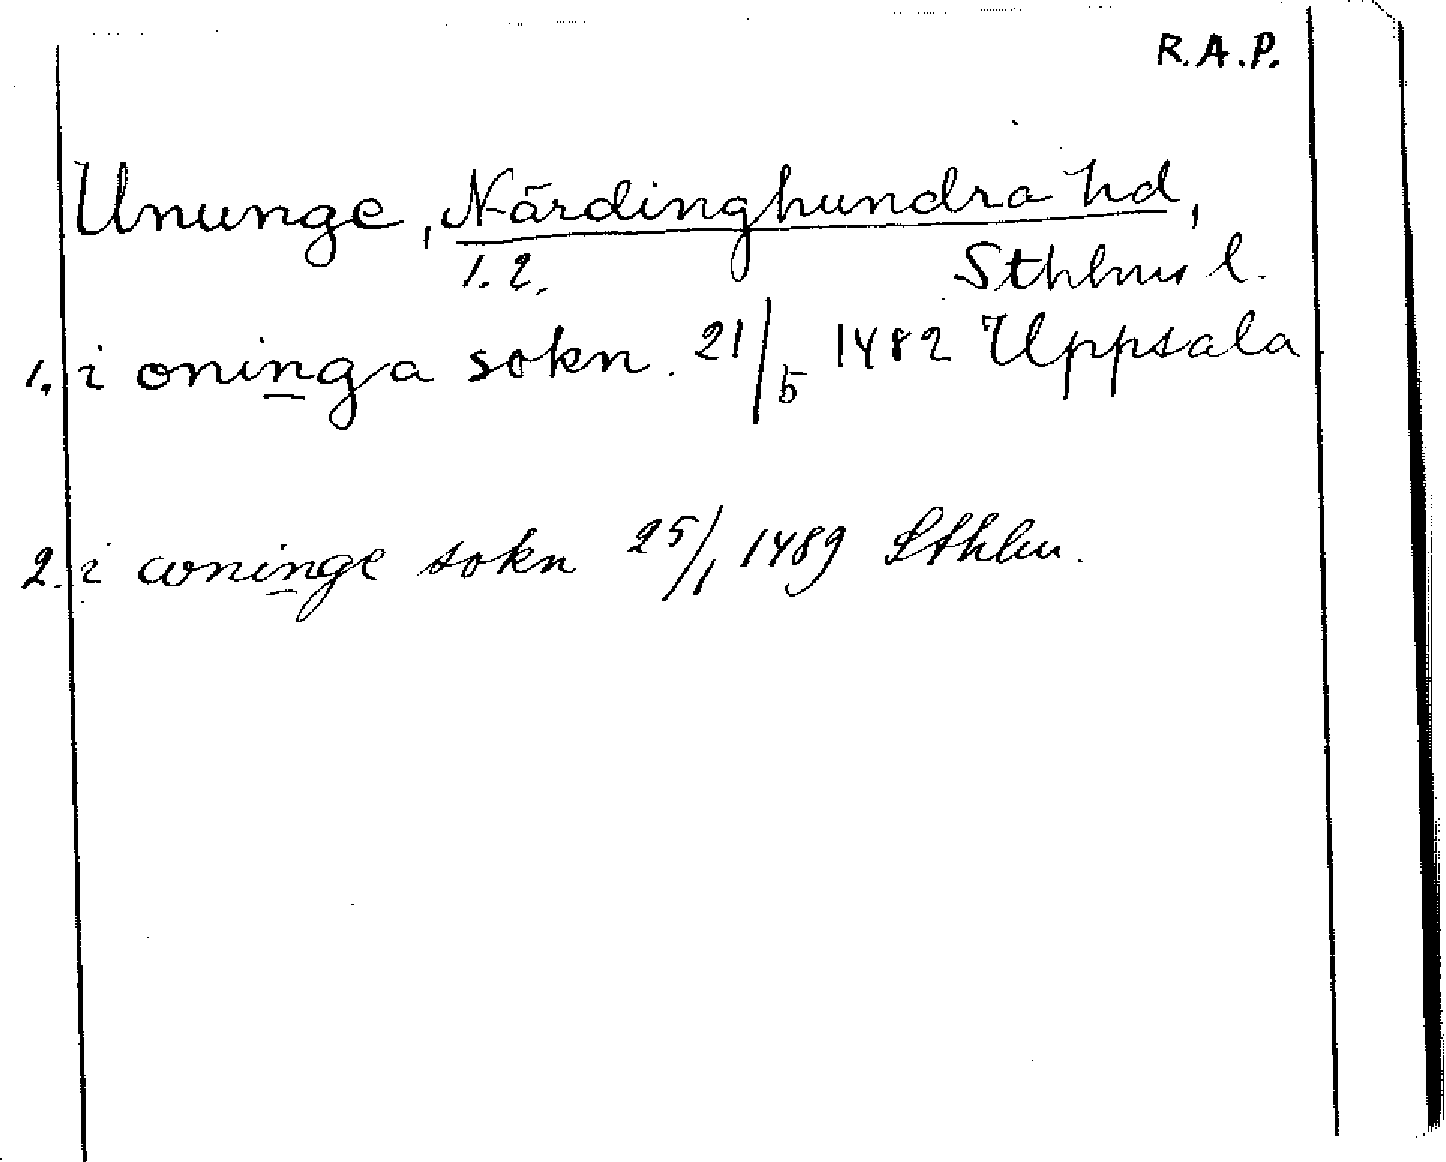 R.A.P.
Ununge, Närdinghundra hd,
1. 2. Sthlms l.
1. i oninga sokn. 21/5 1482 Uppsala
2. i wninge sokn 25/1 1489 Sthlm.